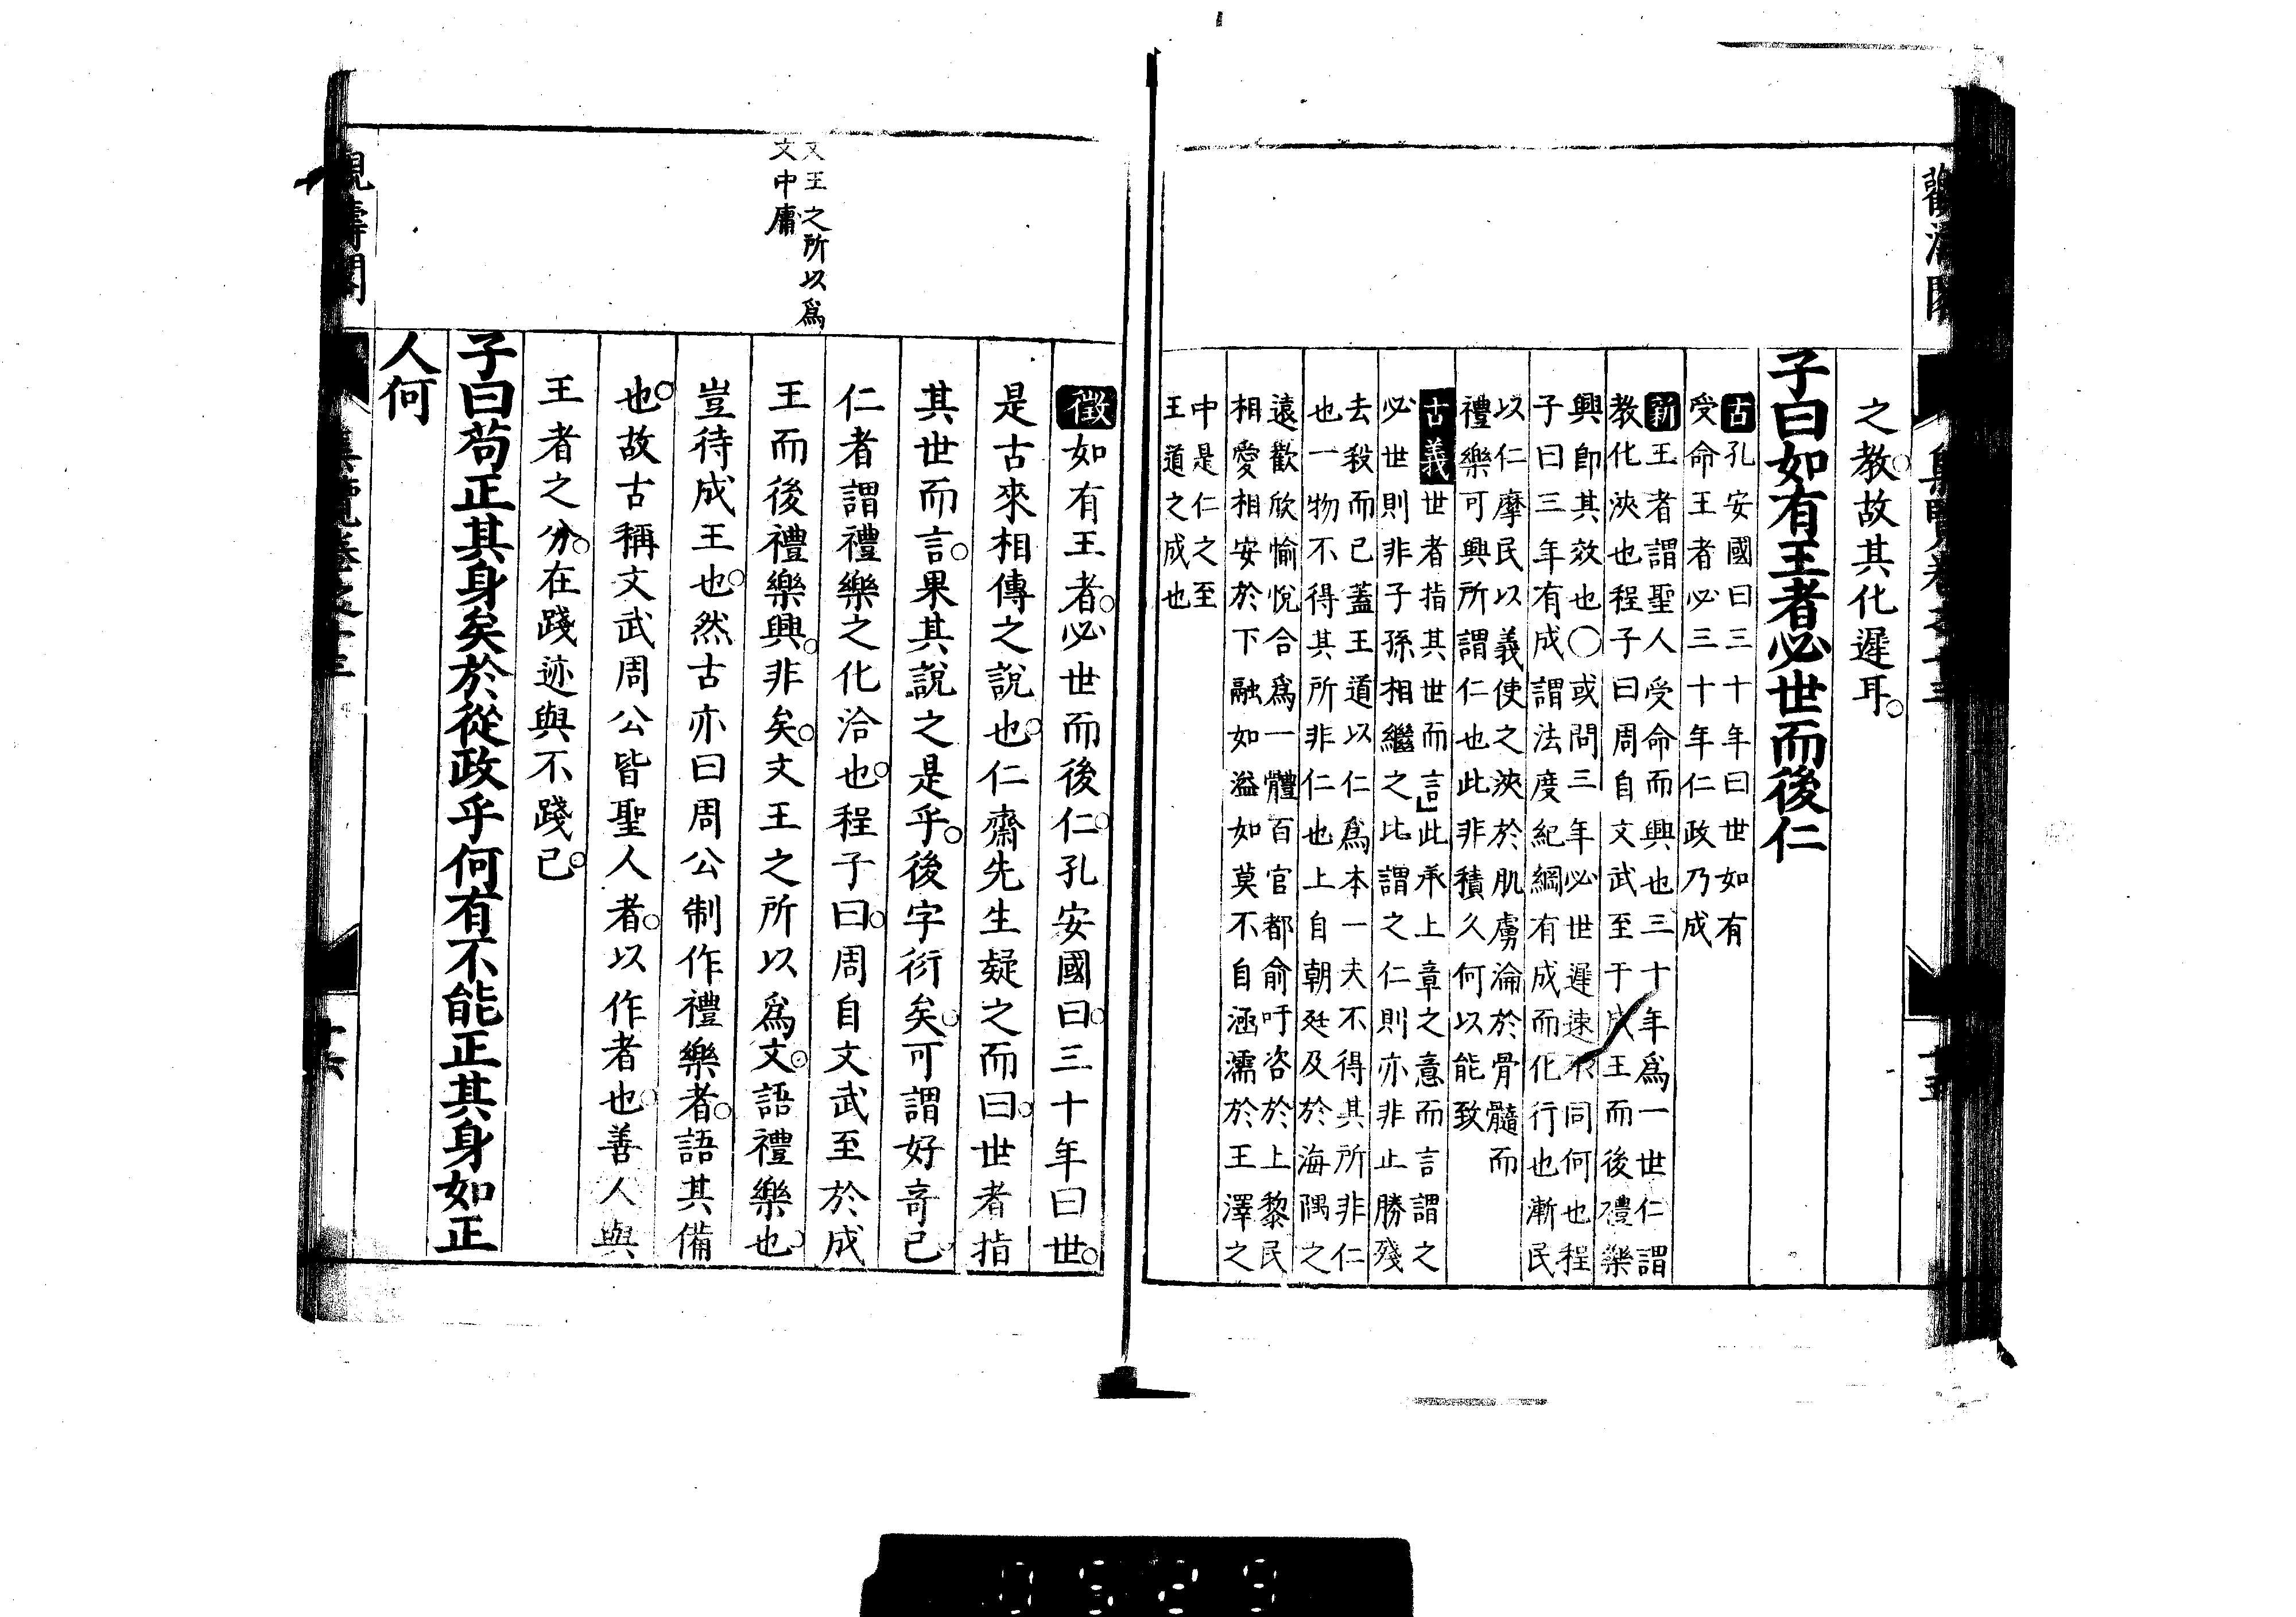 之教故其化遲耳
子曰如有王者必世而後仁
古孔安國曰三十年曰世如有
受命王者必三十年仁政乃成
新王者謂聖人受命而興也三十年爲一世仁謂
教化浹也程子曰周自文武至于成王而後禮樂
興卽其效也〇或問三年必世遲速不同何也程
子曰三年有成謂法度紀綱有成而化行也漸民
以仁摩民以義使之浹於肌膚淪於骨髓而
禮樂可興所謂仁也此非積久何以能致
古義世者指其世而言」此承上章之意而言謂之
必世則非子孫相繼之比謂之仁則亦非止勝殘
去殺而已蓋王道以仁爲本一夫不得其所非仁
也一物不得其所非仁也上自朝廷及於海隅之
遠歡欣愉悅合爲一體百官都俞吁咨於上黎民
相愛相安於下融如溢如莫不自涵濡於王澤之
中是仁之至
王道之成也
徵如有王者必世而後仁孔安國曰三十年曰世
是古來相傳之說也仁齋先生疑之而曰世者指
其世而言果其說之是乎後字衍矣可謂好奇已
仁者謂禮樂之化洽也程子曰周自文武至於成
王而後禮樂興非矣文王之所以爲文語禮樂也
豈待成王也然古亦曰周公制作禮樂者語其備
也故古稱文武周公皆聖人者以作者也善人與
王者之分在踐迹與不踐已
子曰苟正其身矣於從政乎何有不能正其身如正
人何
文王之所以爲
文中庸